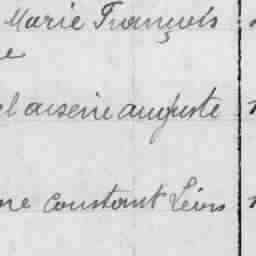 Marie François
e
el arsene auguste
ne Constant Léon